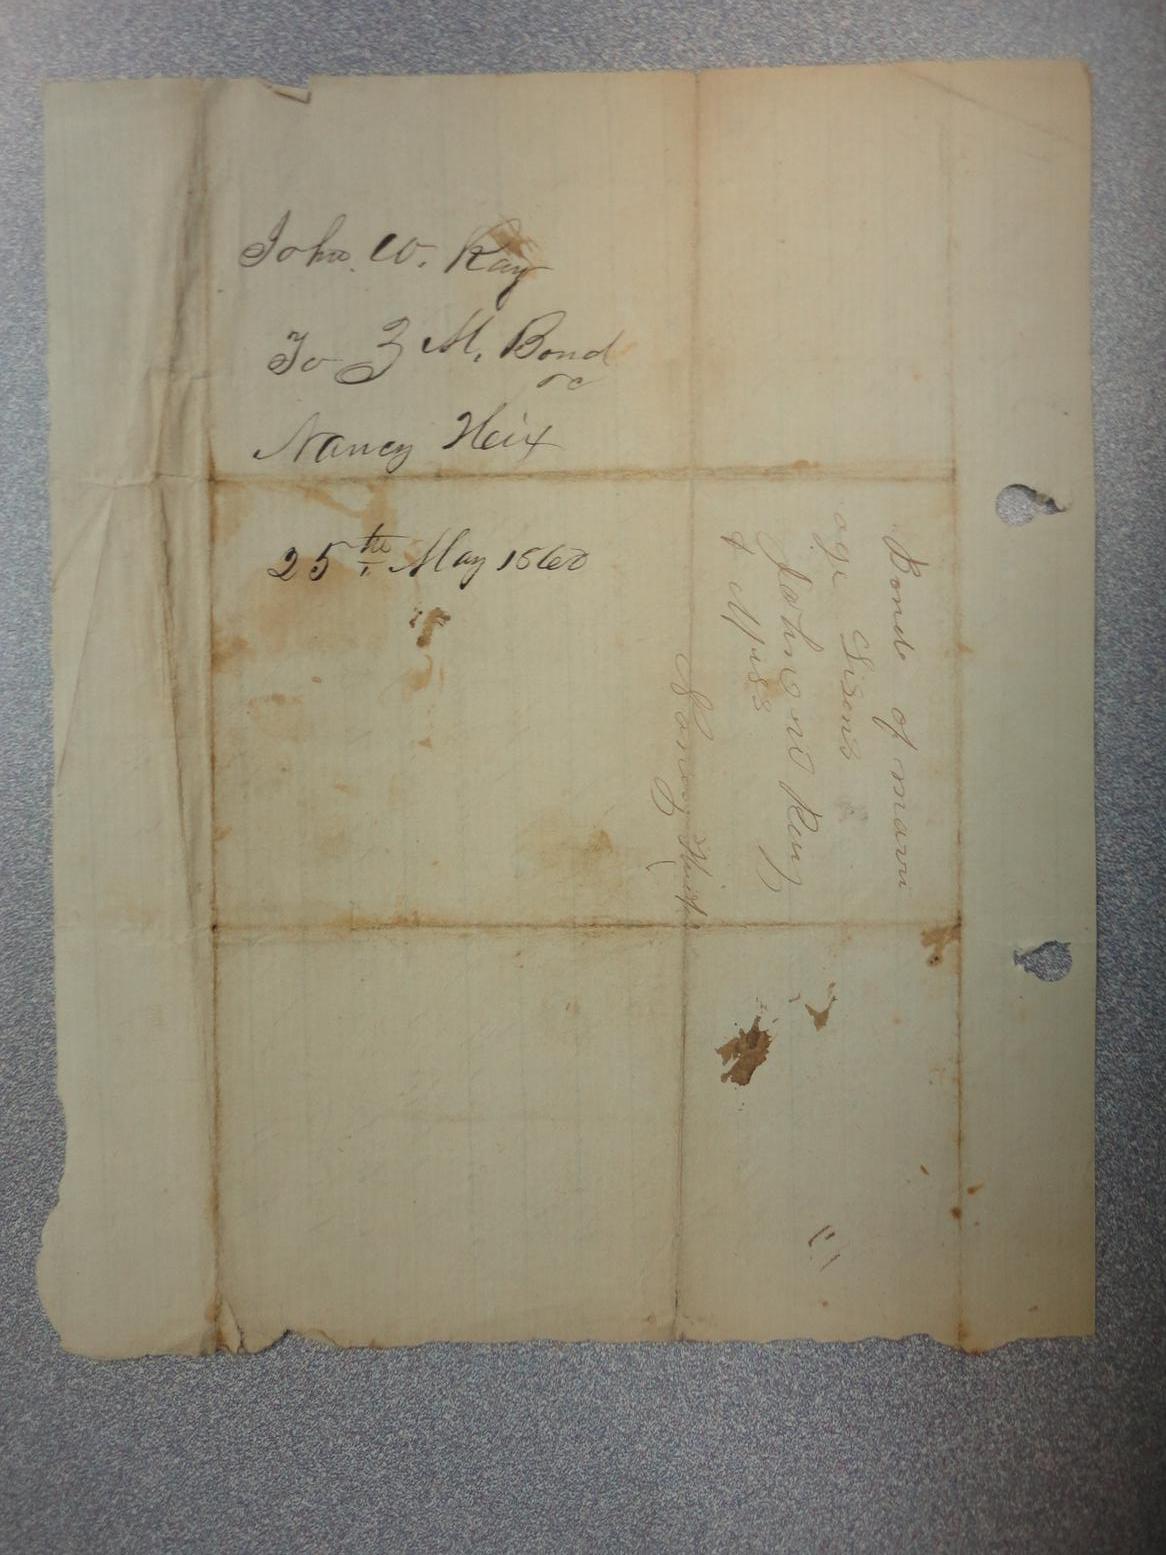 John W. Ray
To Z M. Bond
Nancy Heix
25th May 1860
Bond of marri
age
John W Ray
& Miss
Nancy